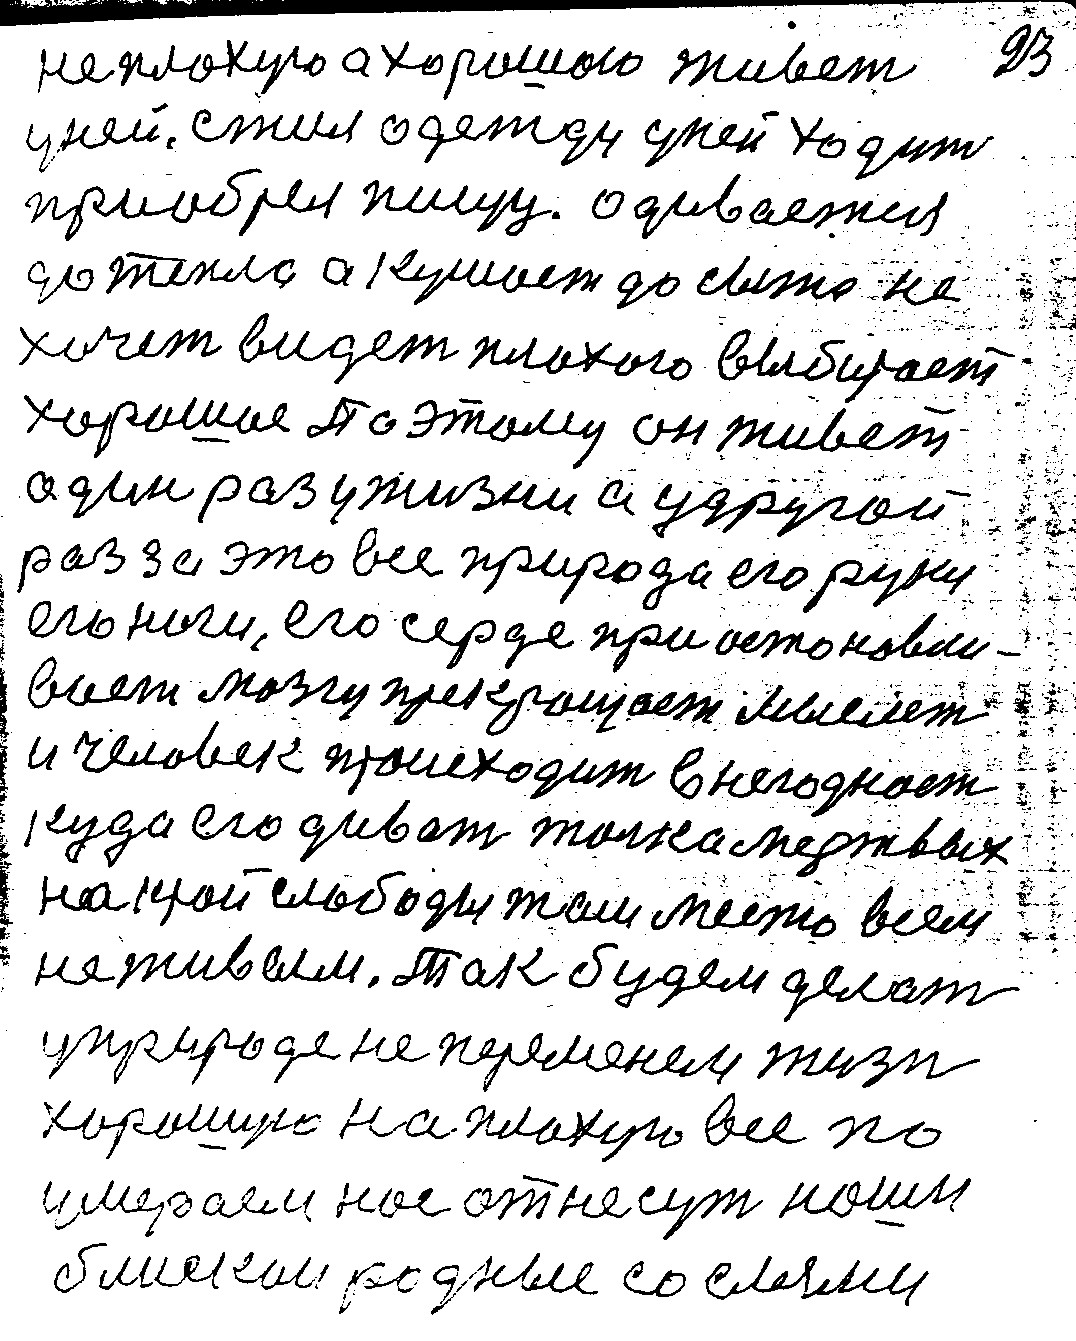 93
не плохую а хорошою живет
у ней. сшил одежду у ней ходит
приобрел пищу. одивается
до тепла а кушает до сыта не
хочет видет плохого выбирает
хорошое По этому он живет
один раз у жизни а у другой
раз за это все природа его руки
его ноги, его серде приостоновли-
вает мозгу прекращает мыслет
и человек происходит в негодност
куда его диват толка мертвых
на край слободы там место всем
не живым. Так будем делат
у природе не переменем жизн
хорошую на плохую все по
умераем нас отнесут наши
блискаи родные со слязми